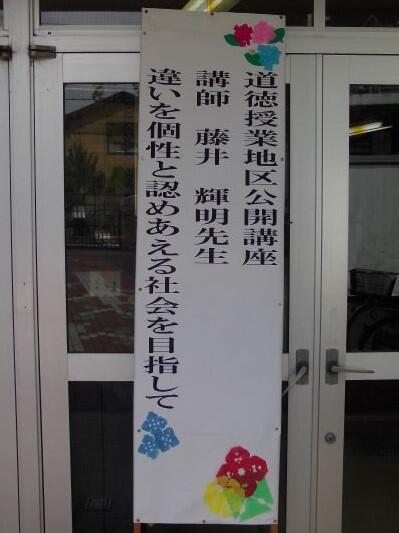 道徳授業地区公開講座
講師　藤井　輝明先生
違いを個性と認めあえる社会を目指して